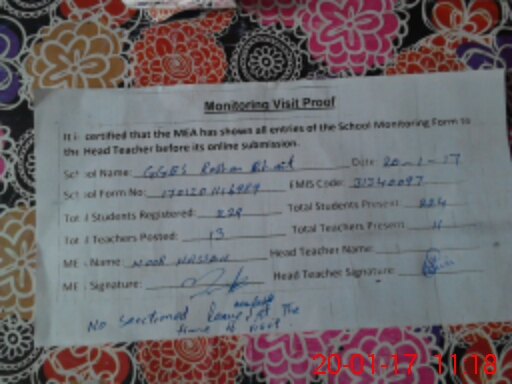 Monitoring Visit Proof
It is certified that the MEA has shown all entries of the School Monitoring Form to
the Head Teacher before its online submission.
School Name: GGES Date: 20-1-17
School Form No: EMIS Code: 31340097
Total Students Registered: 229 Total Students Present: 224
Total Teachers Posted: 13 Total Teachers Present: 11
MEA Name: NOOR HASSAN Head Teacher Name:
MEA Signature: Head Teacher Signature:
available
No Sanctioned at the
time of visit.
20-01-17 11:18